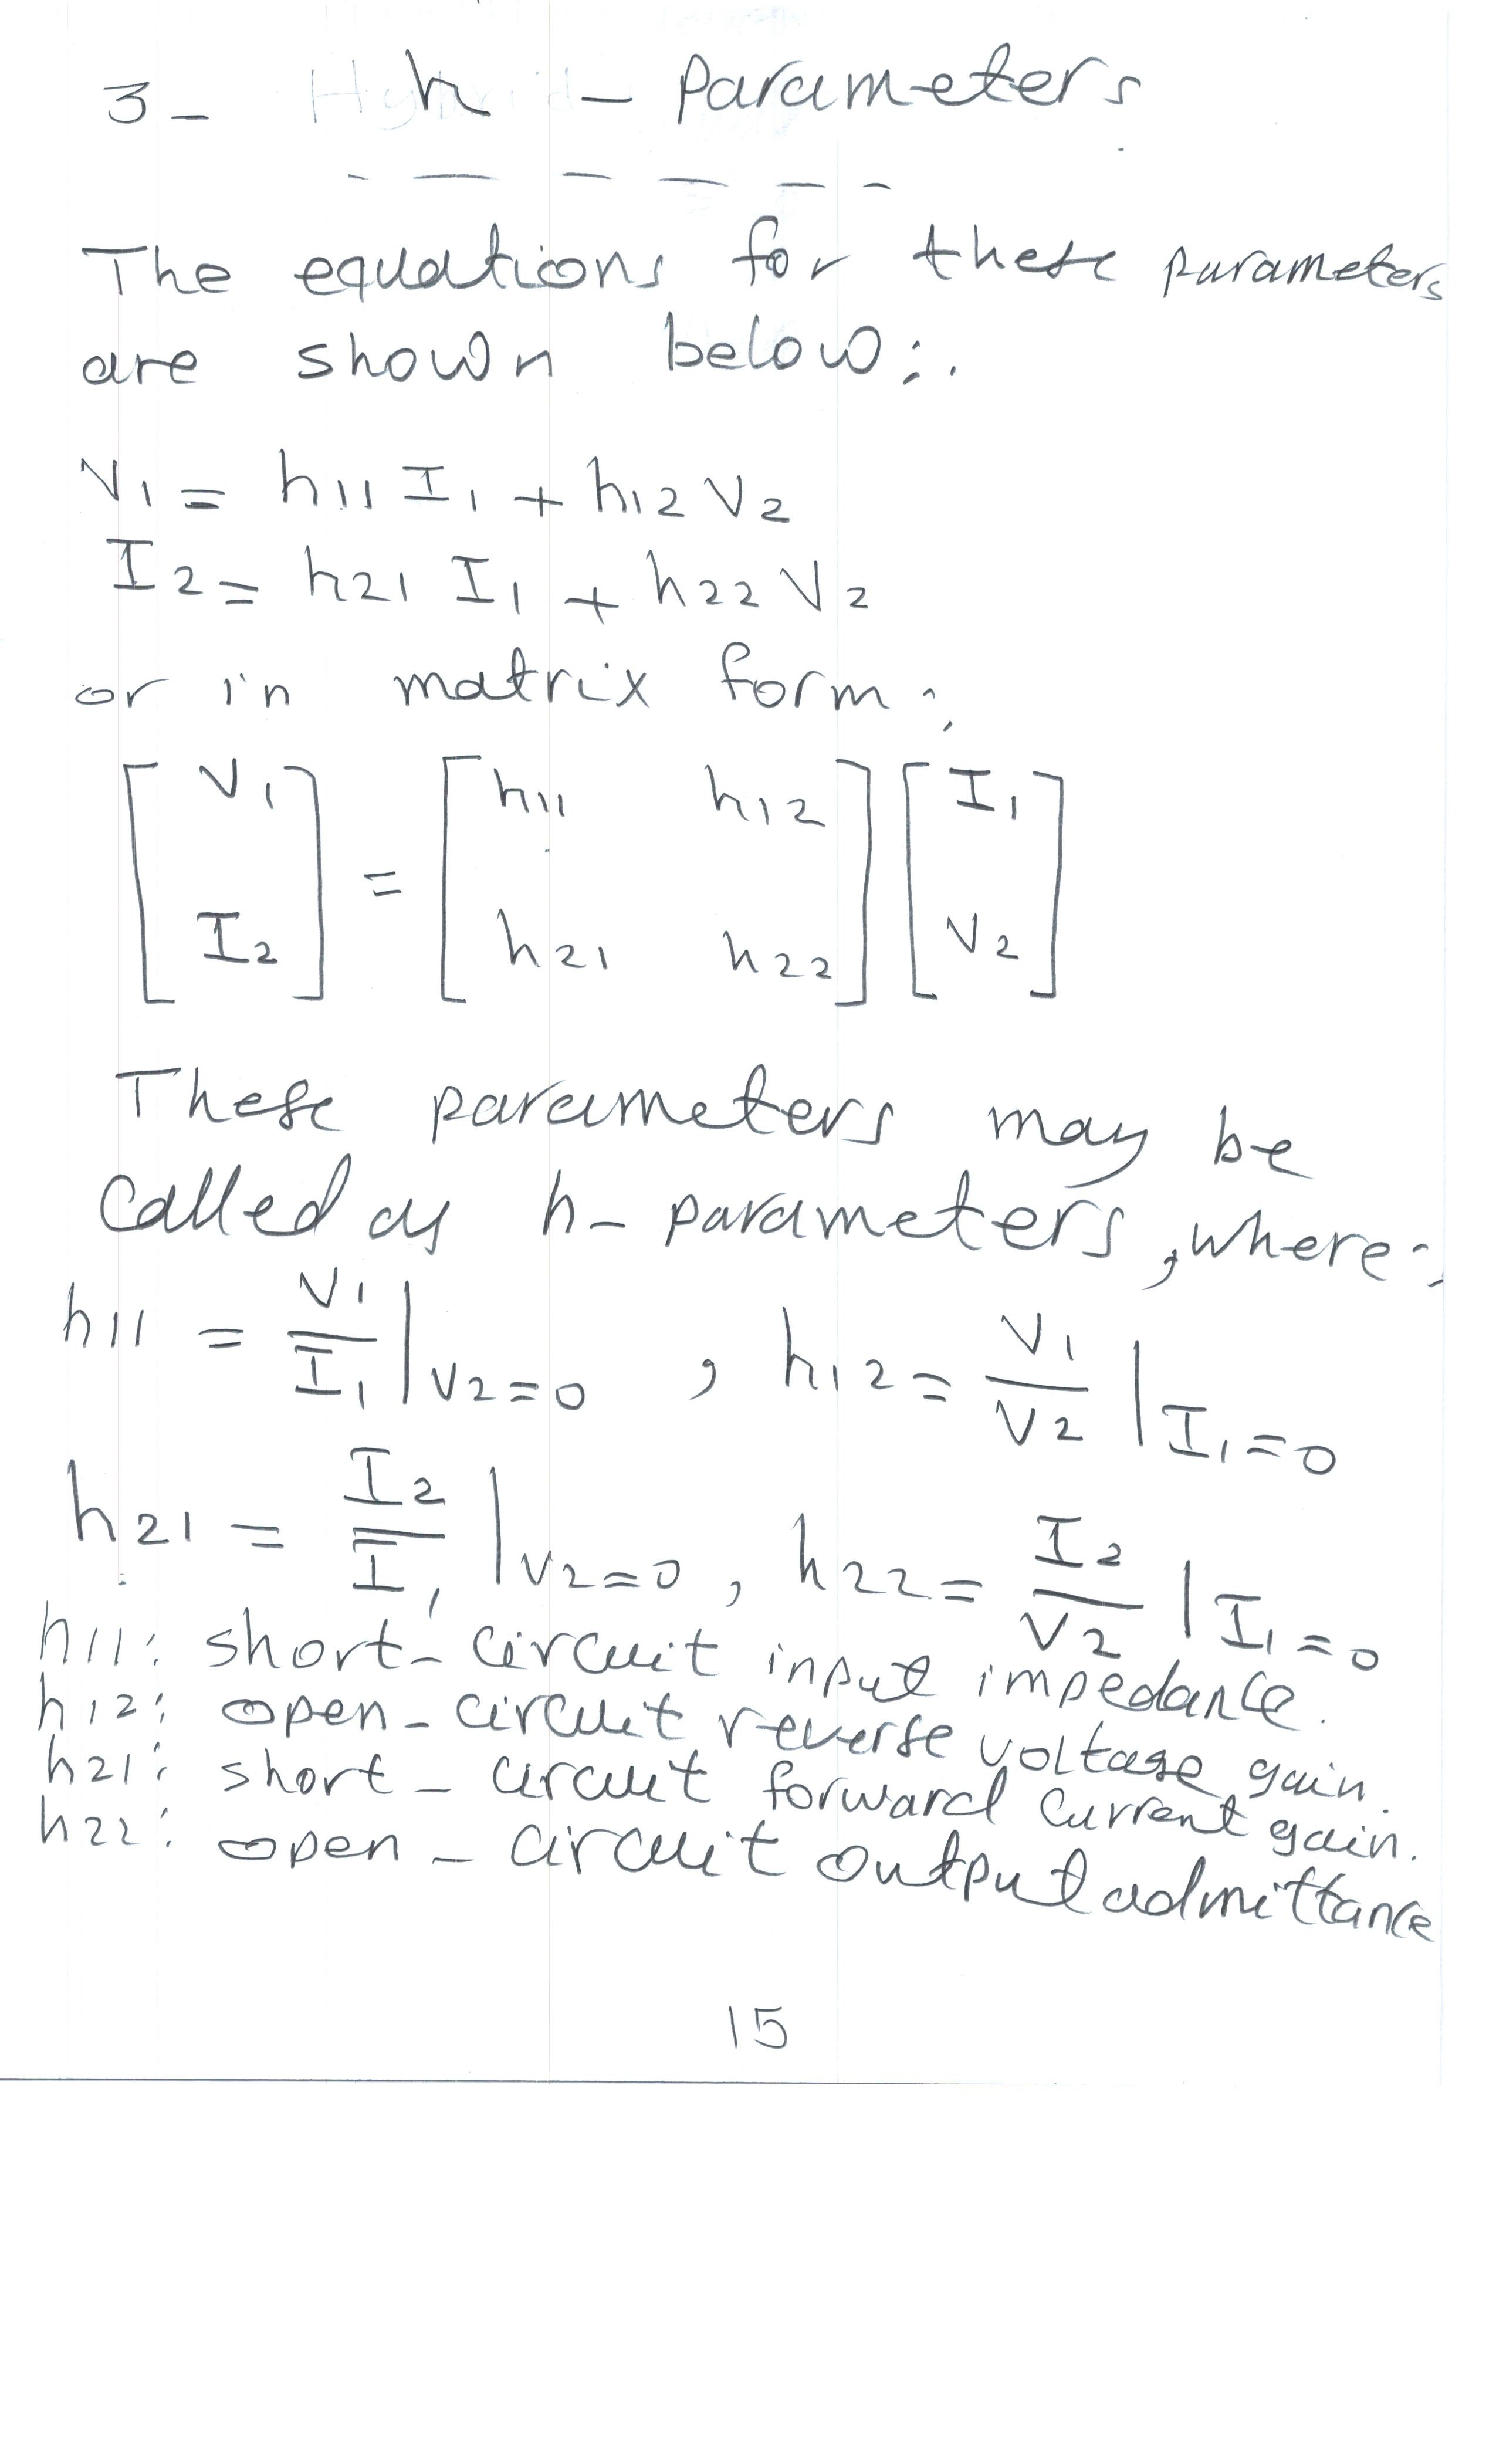 3- h - Parameters
The equations for these parameters
are shown below:.
V1 = h11 I1 + h12 V2
I2 = h21 I1 + h22 V2
or in matrix form:
[V1 I2] = [h11 h12 h21 h22] [I1 V2]
These parameters may be
called as h- parameters, where:
h11 = V1/I1 | V2=0 , h12 = V1/V2 | I1=0
h21 = I2/I1 | V2=0 , h22 = I2/V2 | I1=0
h11: short-circuit input impedance.
h12: open-circuit reverse voltage gain.
h21: short-circuit forward current gain.
h22: open-circuit output admittance
15